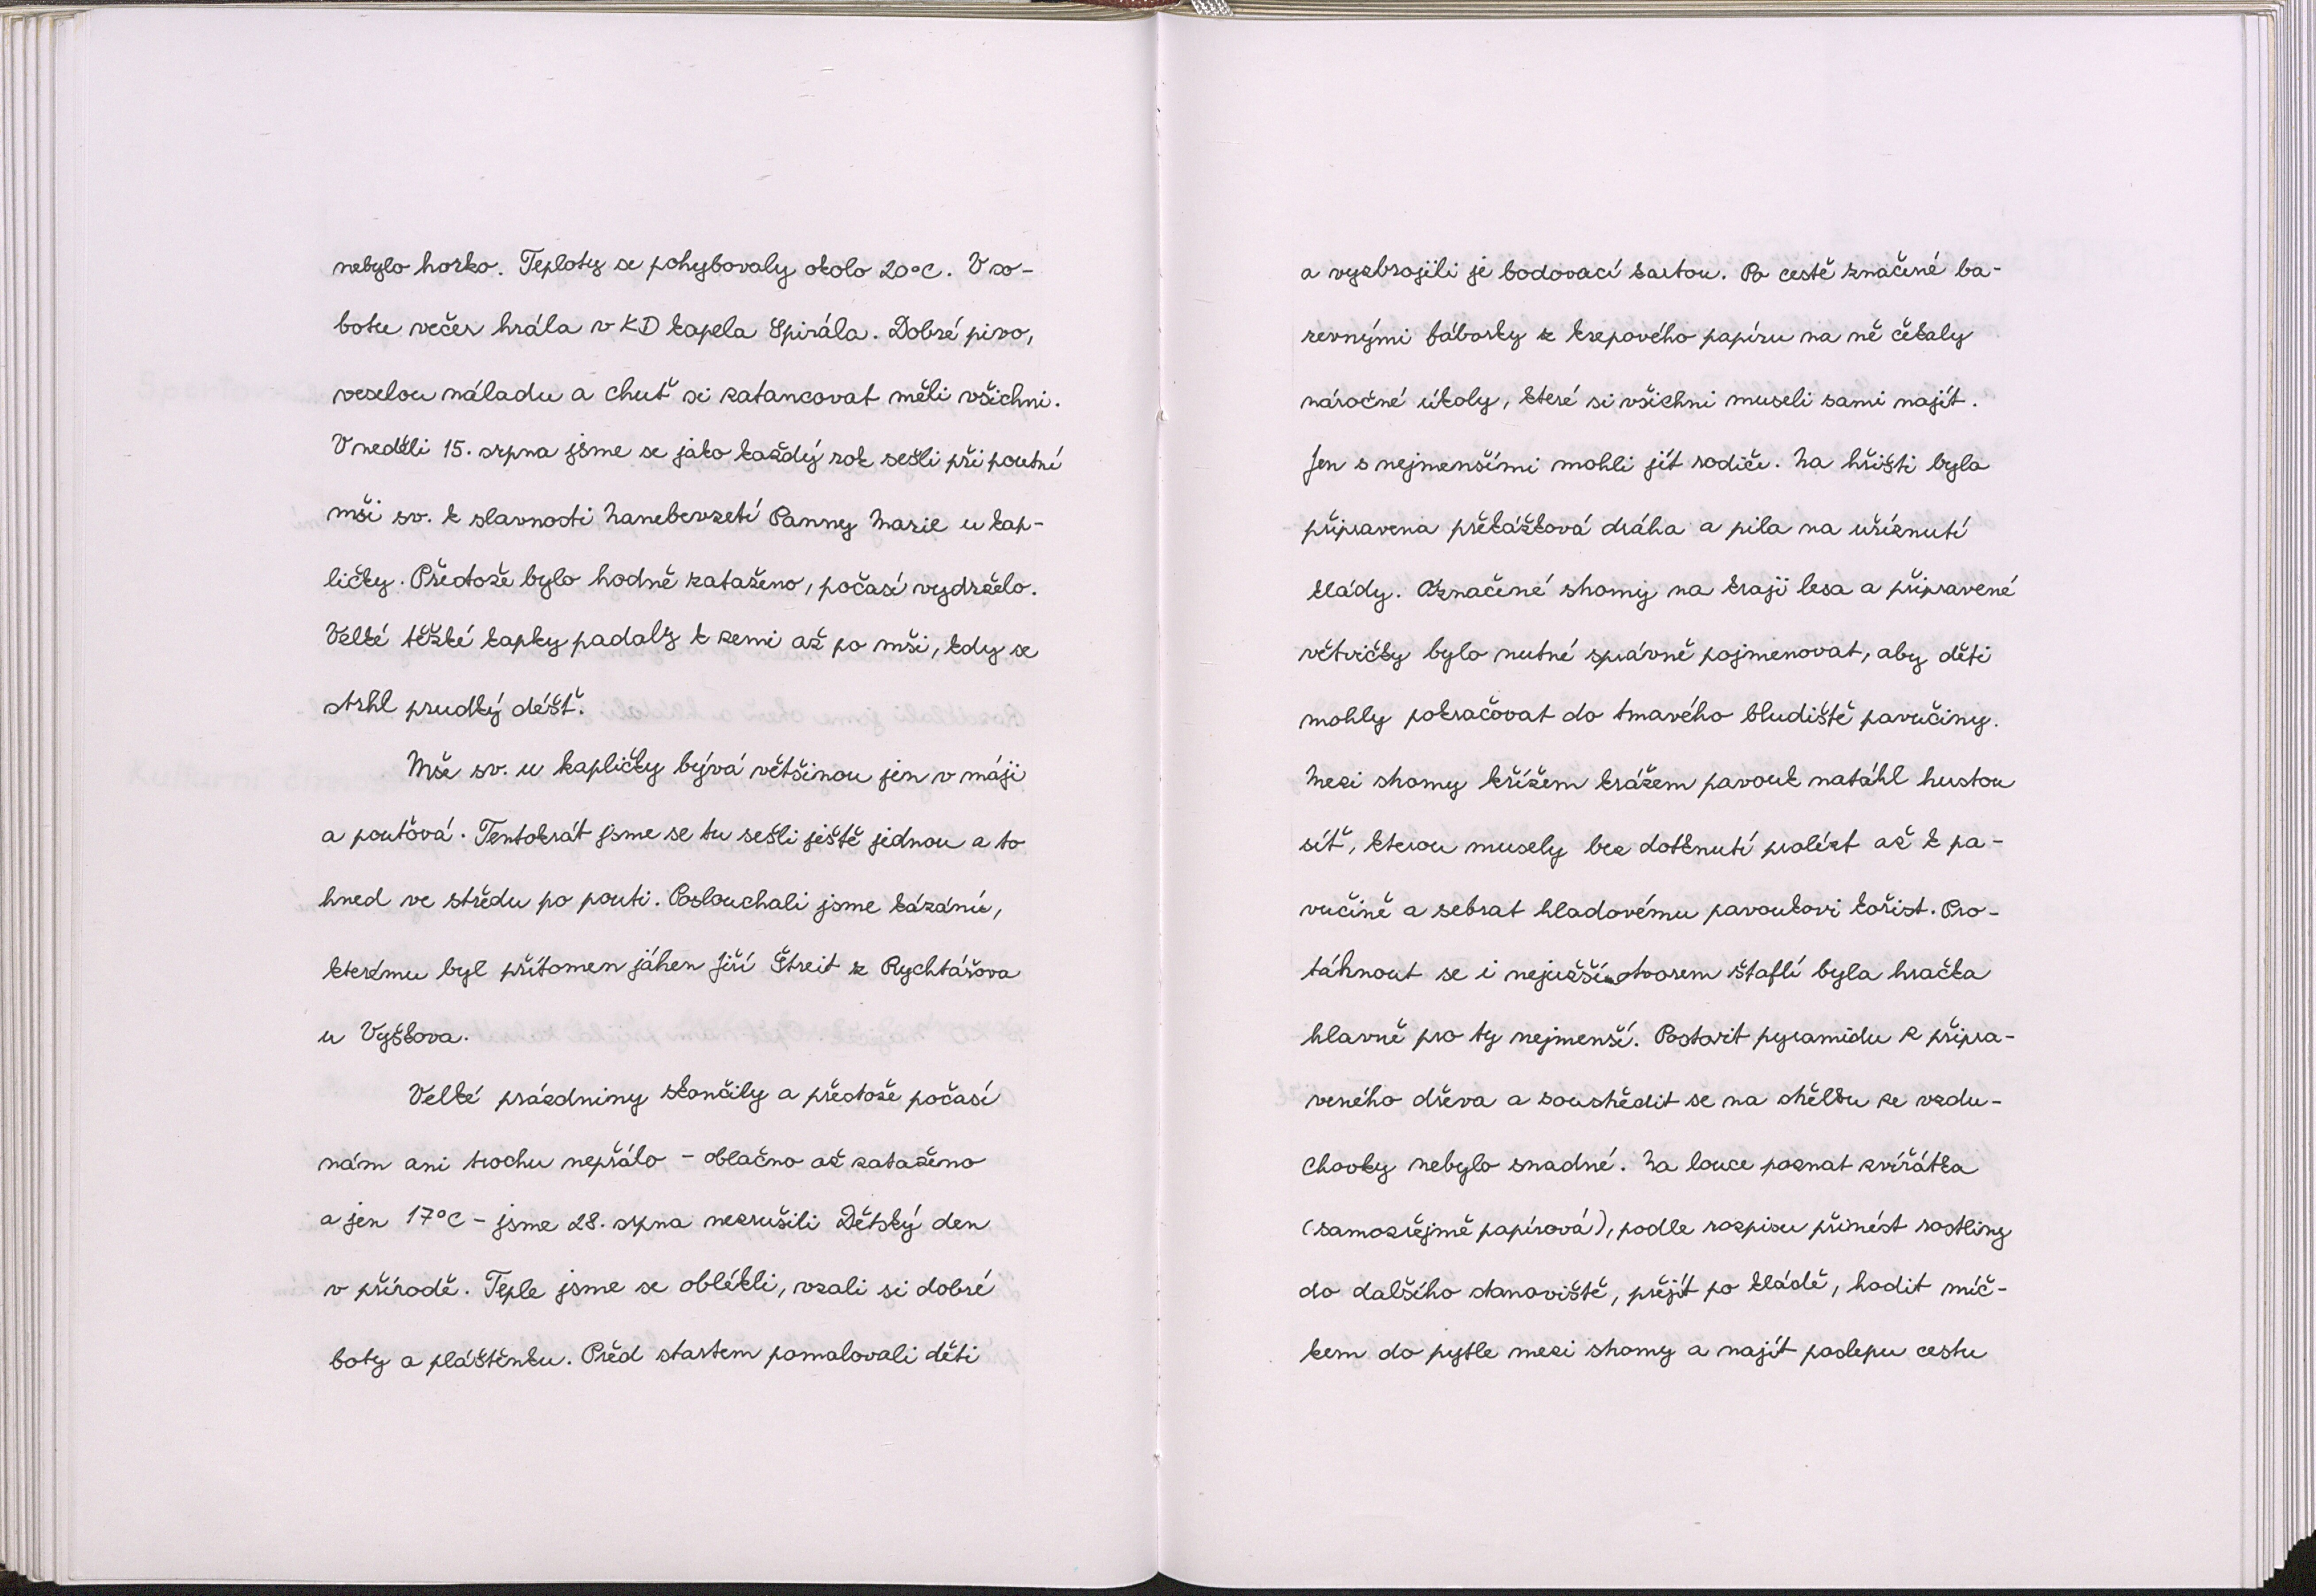 nebylo horko. Teploty se pohybovaly okolo 20°C. V so-
botu večer hrála v KD kapela Spirála. Dobré pivo,
veselou náladu a chuť si zatancovat měli všichni.
V neděli 15. srpna jsme se jako každý rok sešli při poutní
mši sv. k slavnosti Nanebevzetí Panny Marie u kap-
ličky. Přestože bylo hodně zataženo, počasí vydrželo.
Velké těžké kapky padaly k zemi až po mši, kdy se
strhl prudký déšť.
Mše sv. u kapličky bývá většinou jen v máji
a pouťová. Tentokrát jsme se tu sešli ještě jednou a to
hned ve středu po pouti. Poslouchali jsme kázání,
kterému byl přítomen jáhen Jiří Štreit z Rychtářova
u Vyškova.
Velké prázdniny skončily a přestože počasí
nám ani trochu nepřálo - oblačno až zataženo
a jen 17°C - jsme 28. srpna nezrušili Dětský den
v přírodě. Teple jsme se oblékli, vzali si dobré
boty a pláštěnku. Před startem pomalovali děti
a vyzbrojili je bodovací kartou. Po cestě značené ba-
revnými fáborky z krepového papíru na ně čekaly
náročné úkoly, které si všichni museli sami najít.
Jen s nejmenšími mohli jít rodiče. Na hřišti byla
připravena překážková dráha a pila na uříznutí
klády. Označené stromy na kraji lesa a připravené
větvičky bylo nutné správně pojmenovat, aby děti
mohly pokračovat do tmavého bludiště pavučiny.
Mezi stromy křížem krážem pavouk natáhl hustou
síť, kterou musely bez dotknutí prolézt až k pa-
vučině a sebrat hladovému pavoukovi kořist. Pro-
táhnout se i nejužším otvorem štaflí byla hračka
hlavně pro ty nejmenší. Postavit pyramidu z připra-
veného dřeva a soustředit se na střelbu ze vzdu-
chovky nebylo snadné. Na louce poznat zvířátka
(samozřejmě papírová), podle rozpisu přinést rostliny
do dalšího stanoviště, přejít po kládě, hodit míč-
kem do pytle mezi stromy a najít poslepu cestu